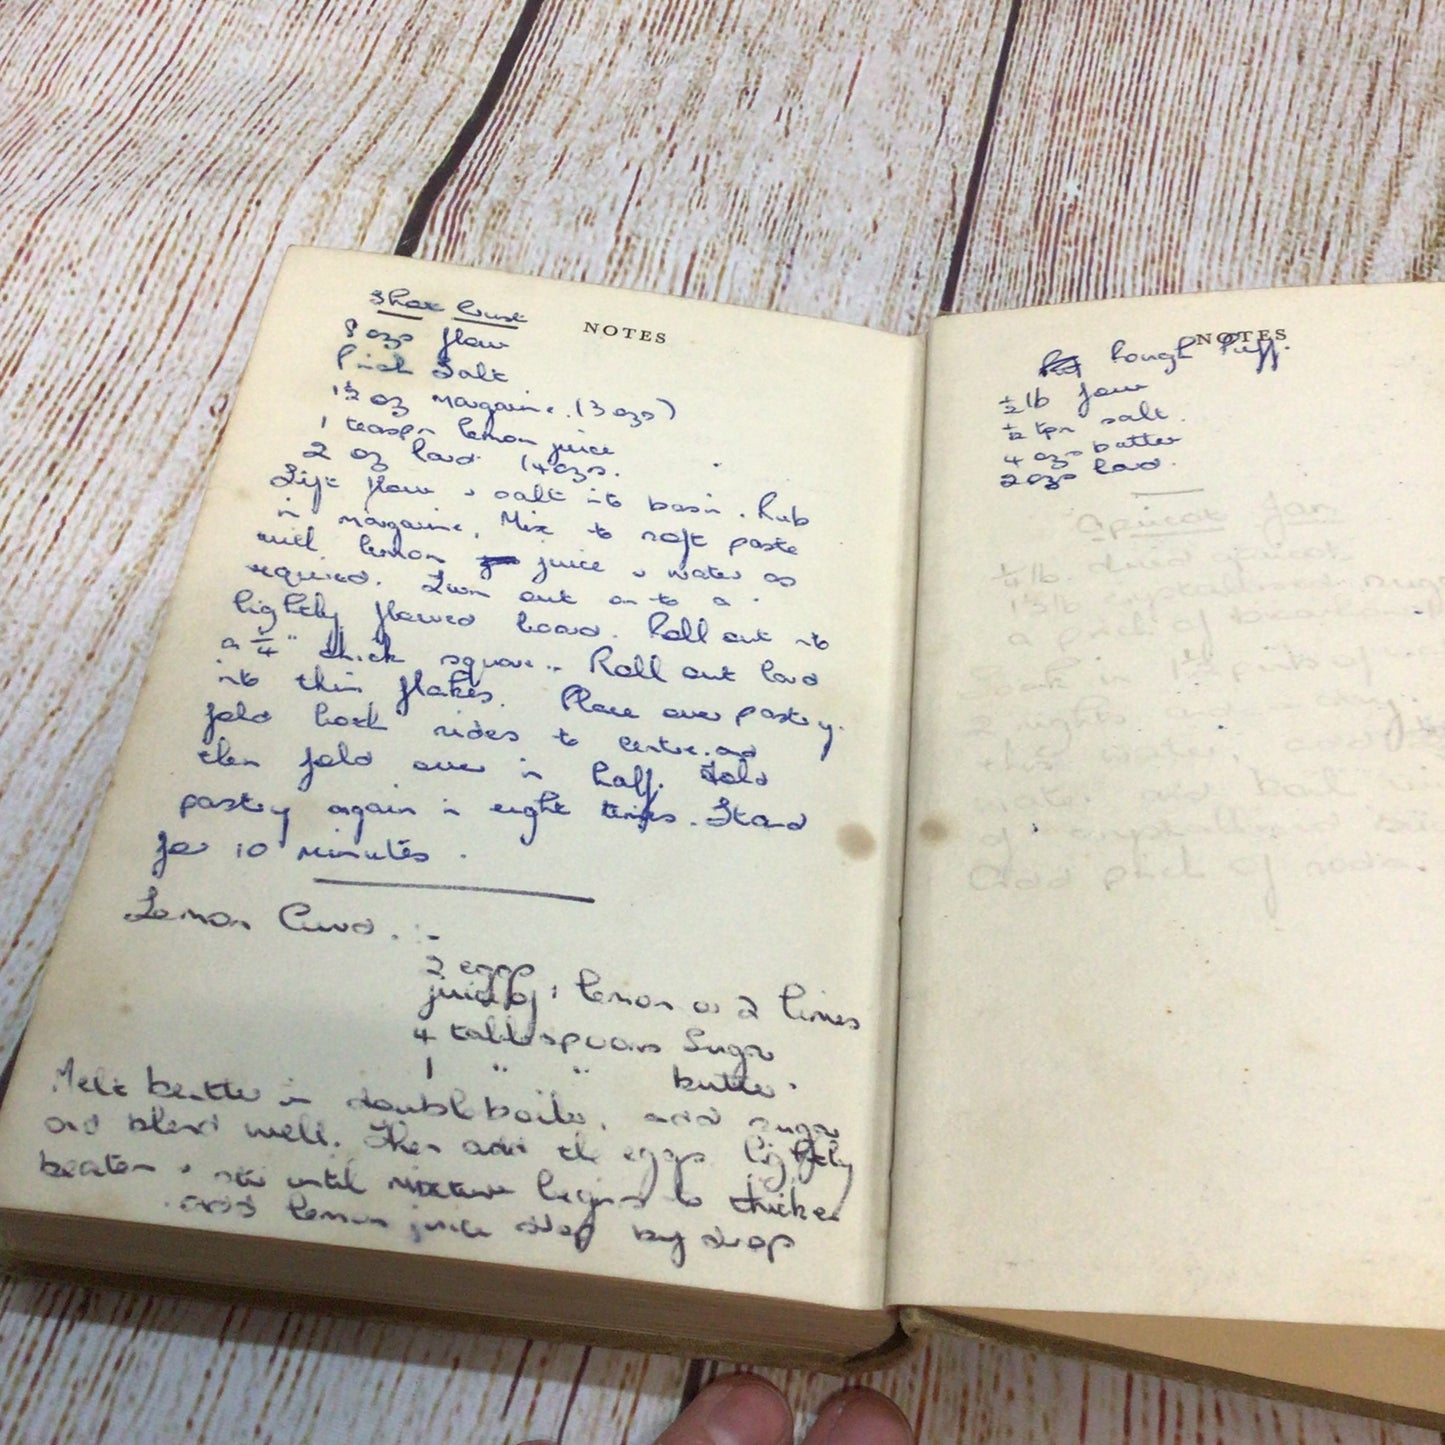 NOTES
Short Crust
8 ozs flour
Pinch Salt
1½ oz margarine. (3 ozs)
1 teaspn lemon juice
2 oz lard (4 ozs.
Sift flour & salt into basin. Rub
in margarine. Mix to soft paste
with lemon juice & water as
required. Turn out on to a
lightly floured board. Roll out into
a ¼" thick square. Roll out lard
into thin flakes. Place over pastry.
fold both sides to centre and
then fold over in half. Fold
pastry again in eight times. Stand
for 10 minutes.
Lemon Curd. -
2 eggs
juice of 1 lemon or 2 limes
4 tablespoons Sugar
1 " " butter.
Melt butter in double boiler, add sugar
and blend well. Then add the eggs lightly
beaten & stir until mixture begins to thicken
add lemon juice drop by drop
NOTES
Rough Puff.
½ lb flour
½ tpn salt.
4 ozs butter
2 ozs lard.
Apricot Jam
¼ lb. dried apricots
a pinch of
in 1½ pints of
2 nights and day.
water, add
and boil
of
Add pinch of soda.